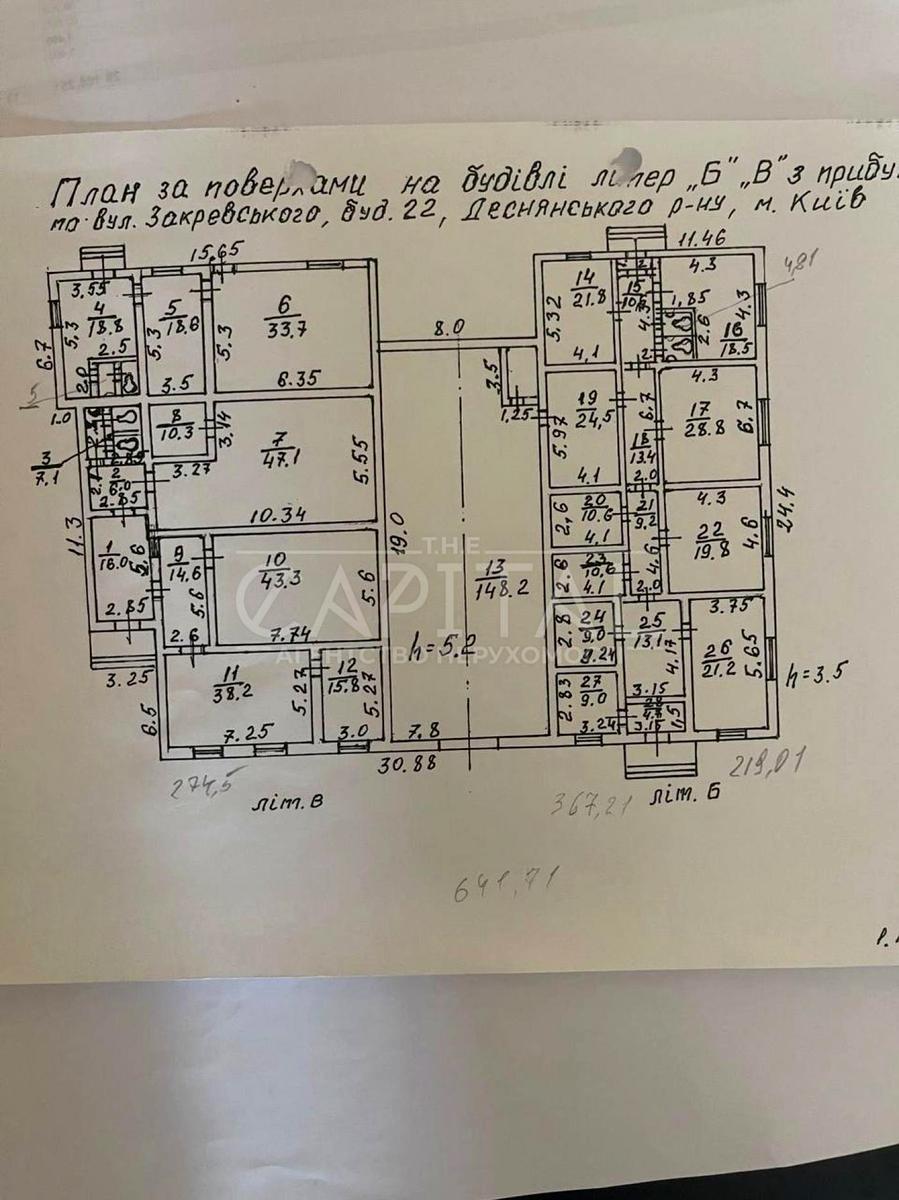 План за поверхами на будівлі літер „Б" „В" з прибу
по вул. Закревського, буд. 22, Деснянського р-ну, м. Київ
15.65
11.46
3.55
4
18.8
5.3
2.5
2.0
6.7
5
18.6
5.3
3.5
6
33.7
5.3
6.35
8.0
14
21.8
5.32
4.1
15
4.3
4.3
4,81
1.85
2.6
16
18.5
4.3
5
1.0
3
7.1
8
10.3
3.14
3.27
7
47.1
5.55
10.34
3.5
1.25
19
24,5
5.97
4.1
6.7
18
13.4
2.0
4.3
17
28.8
6,7
2
6.0
2.85
11.3
1
16.0
5.6
2.85
3.25
9
14.6
5.6
2.6
10
43.3
5.6
7.74
19.0
13
148.2
h=5.2
7.8
20
10.6
2,6
4.1
21
9.2
4.6
2.0
4.3
22
19.8
4.6
24.4
23
10,6
2.6
4.1
24
9.0
2.8
25
13.1
4.17
3.15
3.75
26
21.2
5.65
h=3.5
11
38.2
5.27
7.25
6.5
12
15.8
5.27
3.0
27
9.0
2.83
3.24
3.15
1,5
30.88
274,5
літ. В
367,21
літ. Б
219,01
641,71
THE
CAPITAL
АГЕНТСТВО НЕРУХОМО